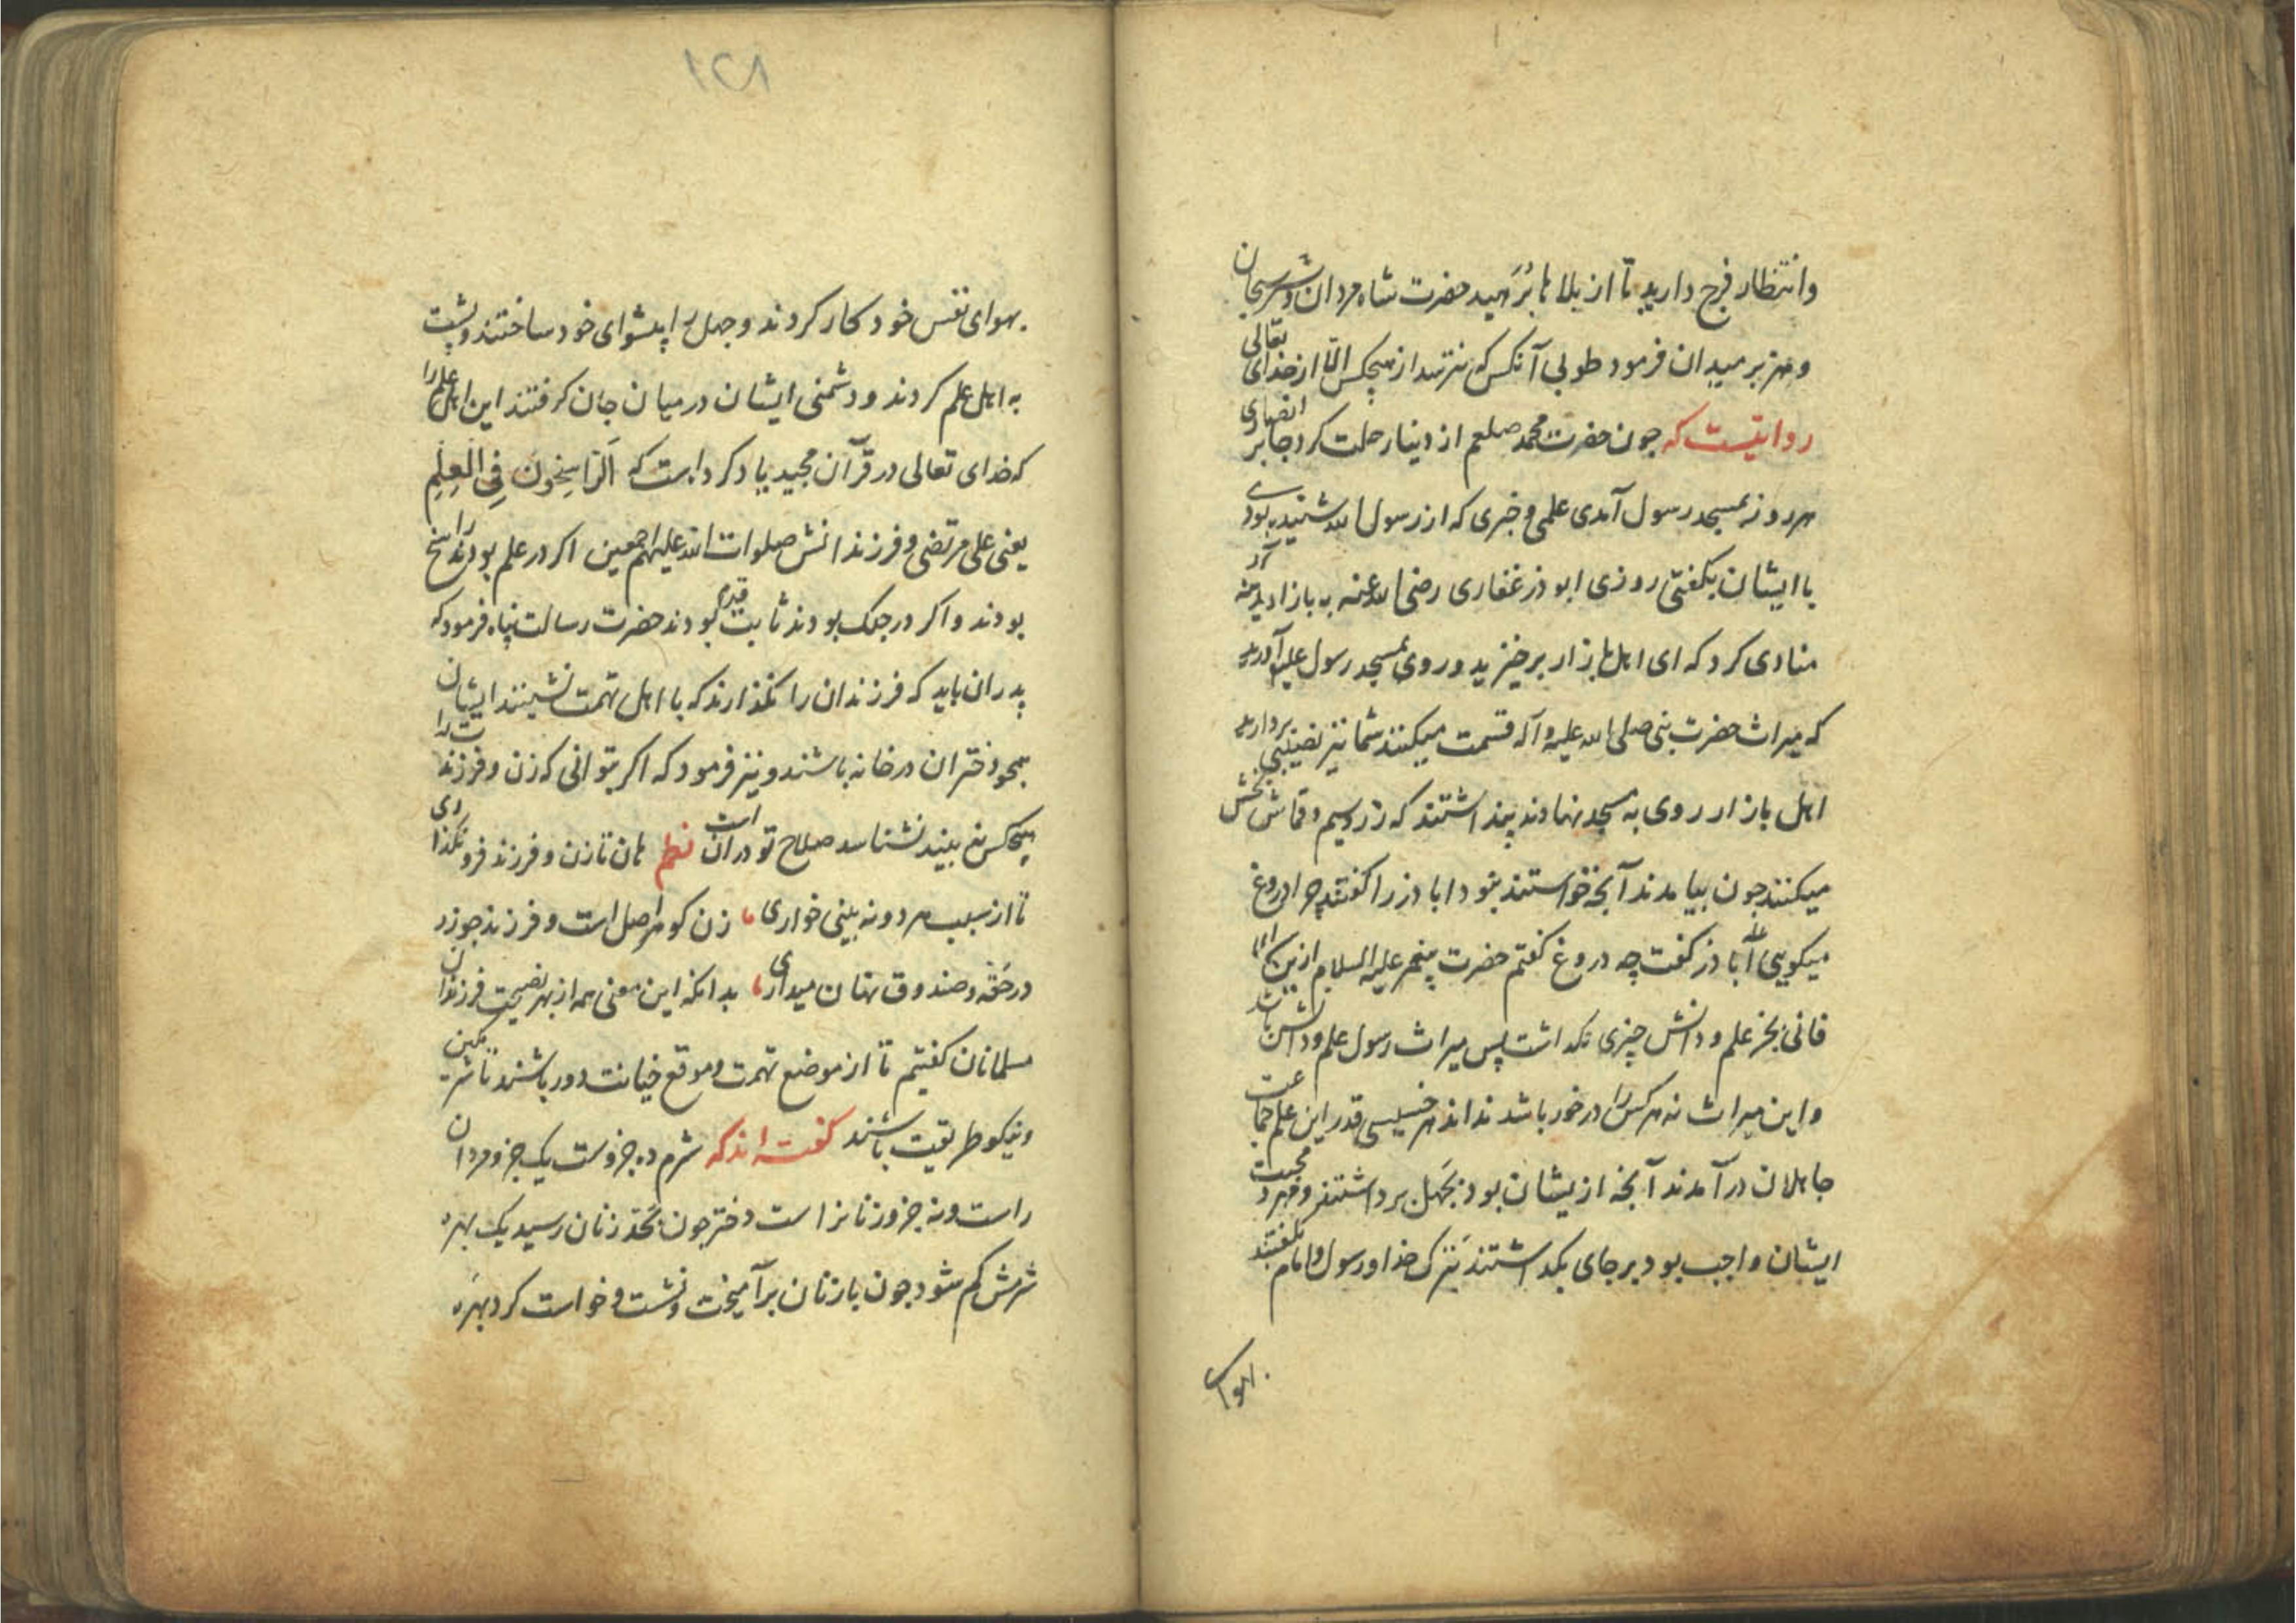 وانتظار فرج دارید تا از بلاها برهید حضرت شاه مردان و شیر یزدان
وهزبر میدان فرمود طوبی آنکس که نترسد از هیچکس الّا از خدای تعالی
روایتست که چون حضرت محمد صلعم از دنیا رحلت کرد جابر انصاری
هر روز بمسجد رسول آمدی علمی و خبری که از رسول الله شنیده بودی
با ایشان بگفتی روزی ابوذر غفاری رضی الله عنه به بازار مدینه
منادی کرد که ای اهل بازار برخیزید و روی بمسجد رسول علیه آورید
که میراث حضرت نبی صلی الله علیه وآله قسمت میکنند شما نیز نصیبی بردارید
اهل بازار روی به مسجد نهادند پنداشتند که زر و سیم و قماش بخش
میکنند چون بیامدند آنچه خواستند نبود اباذر را گفتند چرا دروغ
میکویی اباذر کفت چه دروغ کفتم حضرت پیغمبر علیه السلام ازین
فانی بجز علم و دانش چیزی نکداشت پس میراث رسول علم و دانش باشد
و این میراث نه هر کس را درخور باشد نداند هر خسیسی قدر این علم جماعت
جاهلان درآمدند آنچه ازیشان بود بجهل برداشتند و مهر و محبت
ایشان واجب بود بر جای بکداشتند بترک خدا و رسول و امام بگفتند
بهوای
۱۲۸
بهوای نفس خود کار کردند و جهل را پیشوای خود ساختند و پشت
به اهل علم کردند و دشمنی ایشان در میان جان کرفتند این اهل علم را
که خدای تعالی در قرآن مجید یاد کرد است که اَلرّاسِخُونَ فِی الْعِلْمِ
یعنی علی مرتضی و فرزندانش صلوات الله علیهم اجمعین اکر در علم بودند راسخ
بودند و اکر در جنک بودند ثابت قدم بودند حضرت رسالت پناه فرمود که
پدران باید که فرزندان را نکذارند که با اهل تهمت نشینند ایشان
همچو دختران در خانه باشند و نیز فرمود که اکر بتوانی که زن و فرزندت را
هیچکس نبیند نشناسد صلاح تو در آن است نظم هان تا زن و فرزند فرو نکذاری
تا از سبب هر دو نه بینی خواری زن کوهر اصل است و فرزند چو زر
در حقه و صندوق نهان میداری بدانکه این معنی همه از بهر نصیحت فرزندان
مسلمانان کفتیم تا از موضع تهمت و موقع خیانت دور باشند تا شرمکین
و نیکو طریقت باشند کفته اند که شرم ده جزوست یک جزو مردان
راست و نه جزو زنانرا است دختر چون بحد زنان رسید یک بهره
شرمش کم شود چون با زنان برآمیخت و نشست و خواست کرد بهره